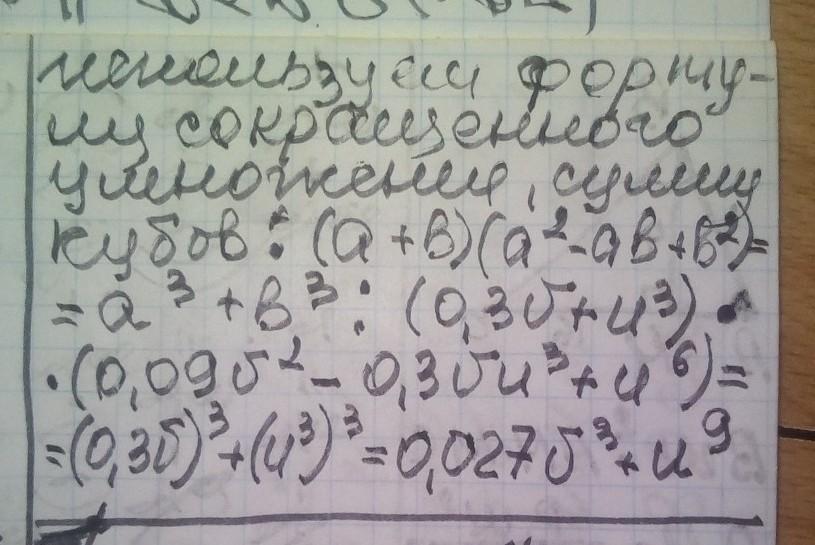 используем форму-
лу сокращенного
умножения, сумму
кубов: (а+в)(а²-ав+в²)=
=а³+в³: (0,3б+и³)·
·(0,09б²-0,3би³+и⁶)=
=(0,3б)³+(и³)³=0,027б³+и⁹